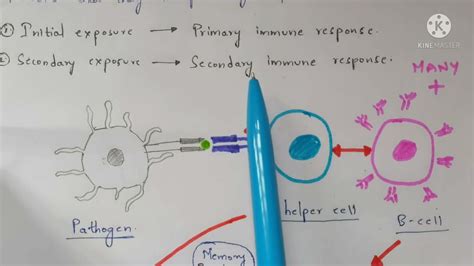 ① Initial exposure → Primary immune response.
② Secondary exposure → Secondary immune response.
MANY
+
Pathogen.
helper cell
B-cell
Memory
KINEMASTER